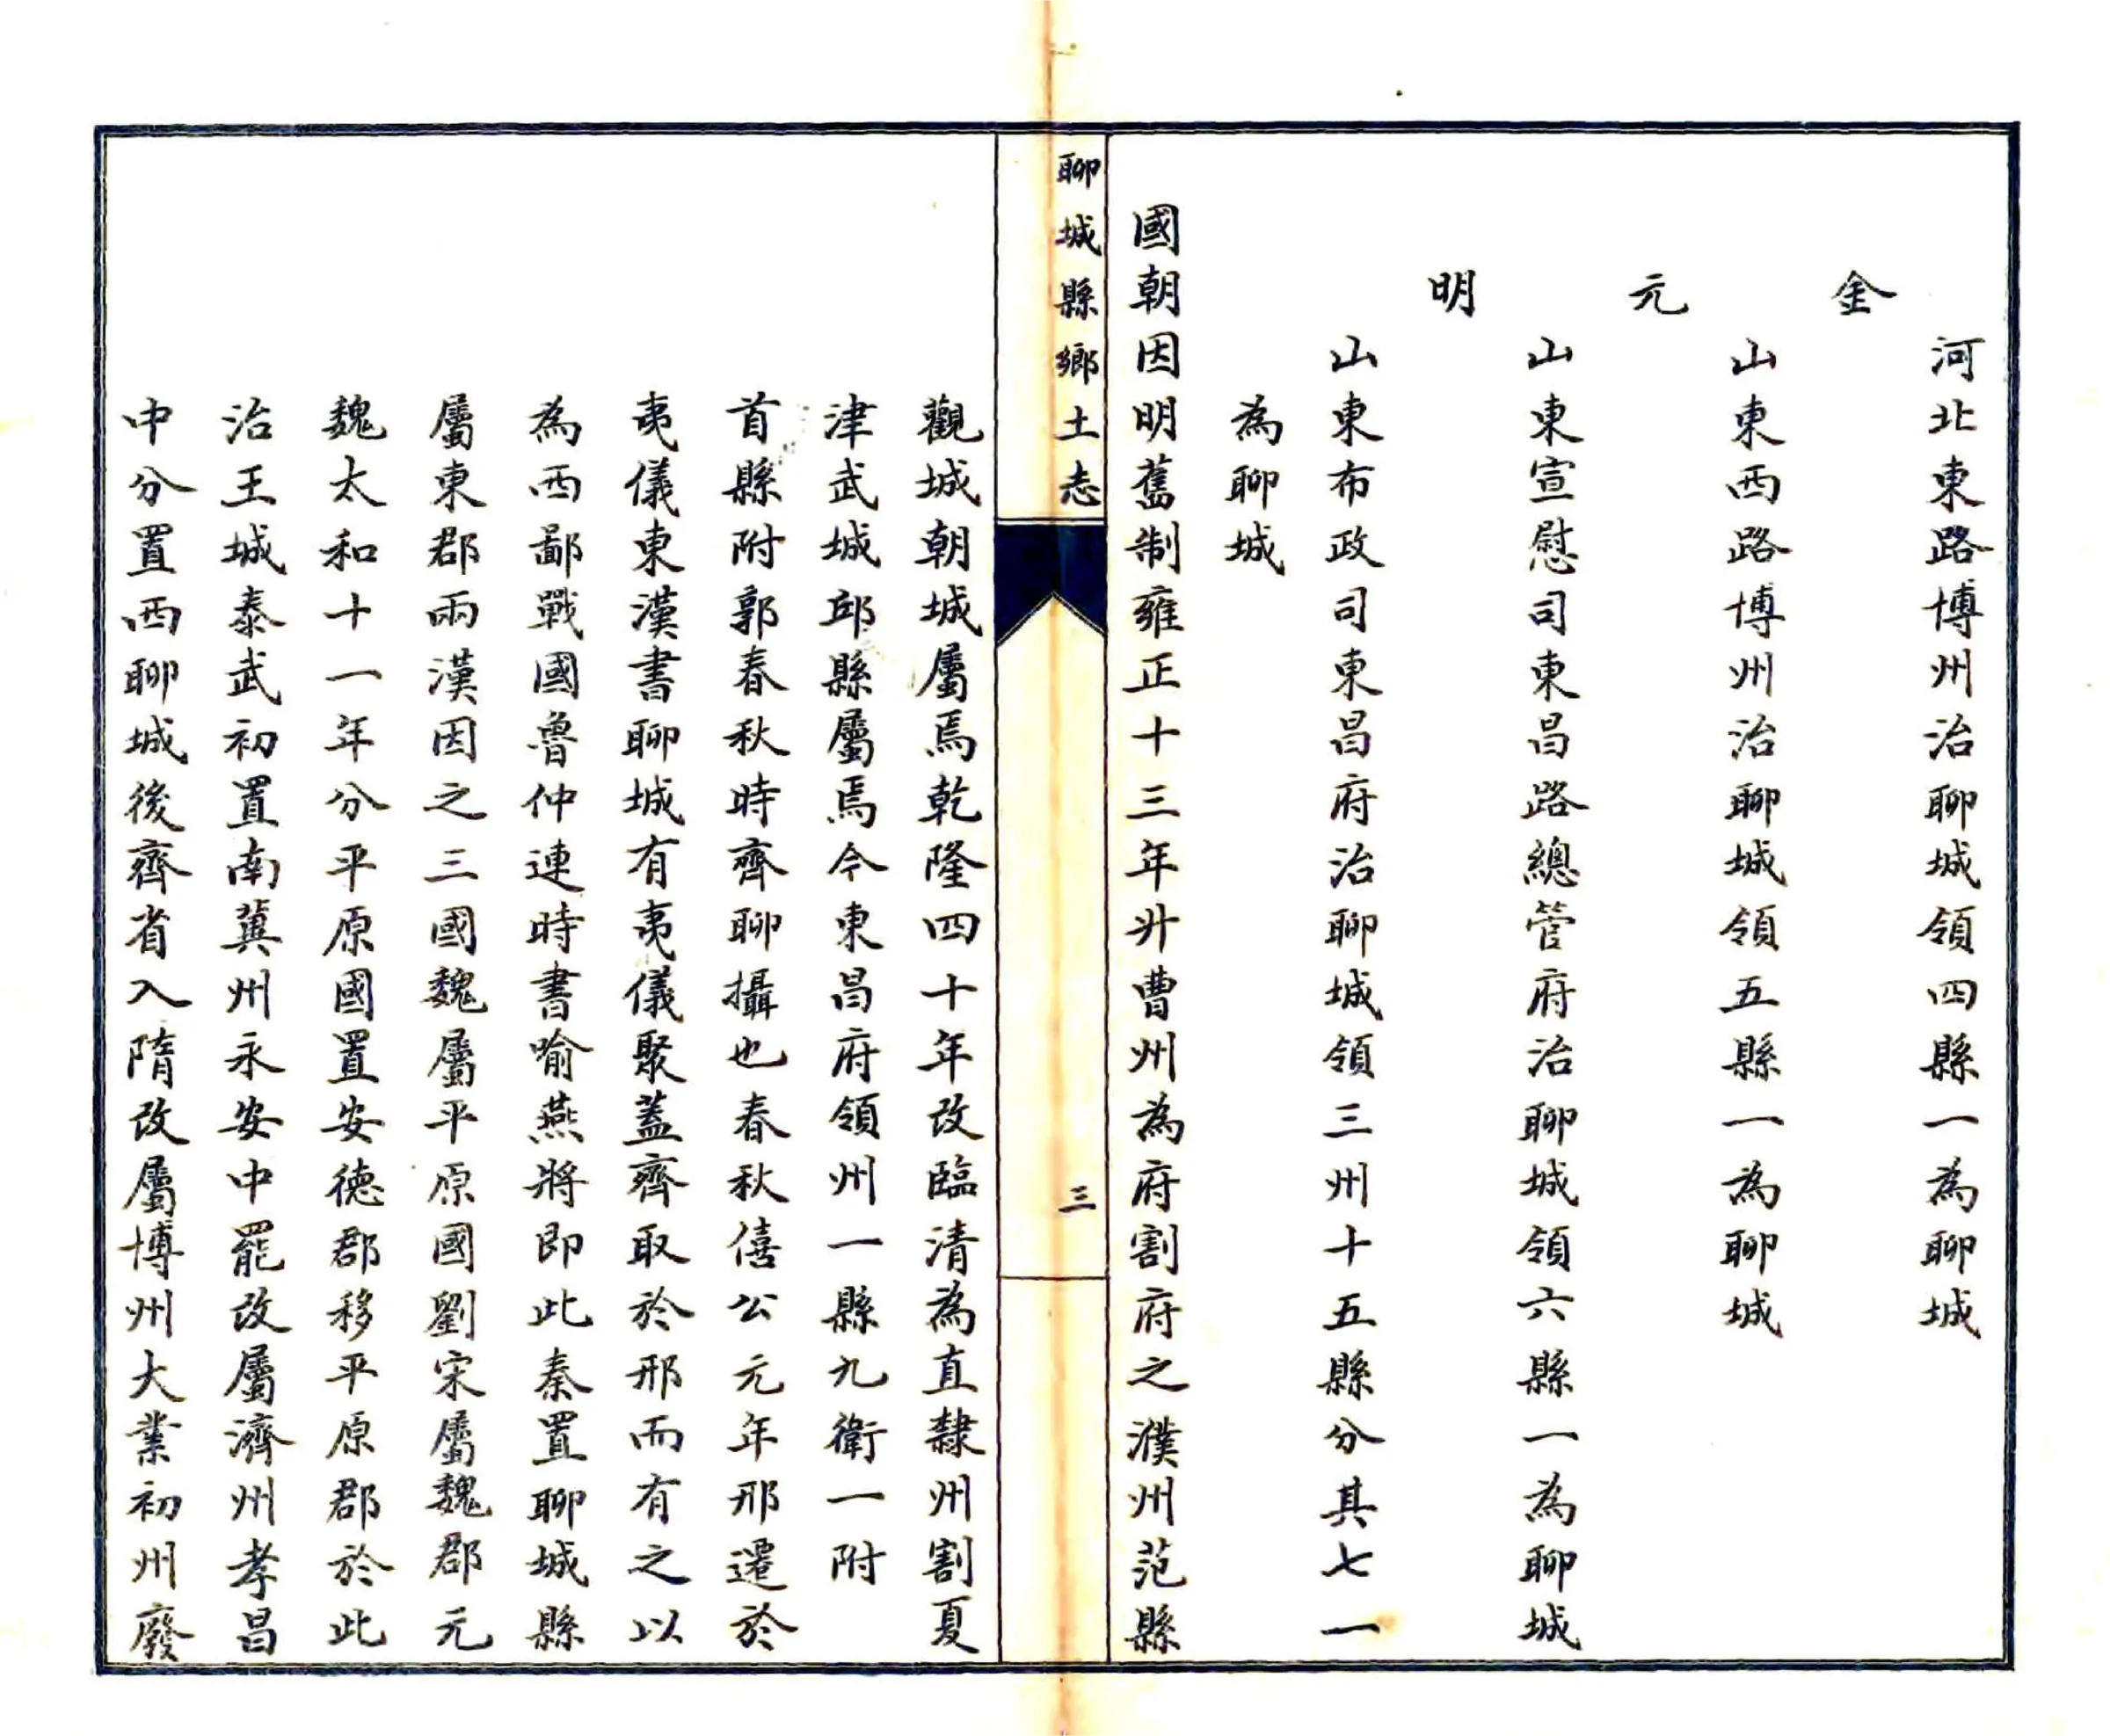 河北東路博州治聊城領四縣一為聊城
金
山東西路博州治聊城領五縣一為聊城
元
山東宣慰司東昌路總管府治聊城領六縣一為聊城
明
山東布政司東昌府治聊城領三州十五縣分其七一
為聊城
國朝因明舊制雍正十三年升曹州為府割府之濮州范縣
聊城縣鄉土志
三
觀城朝城屬焉乾隆四十年改臨清為直隸州割夏
津武城邱縣屬焉今東昌府領州一縣九衛一附
首縣附郭春秋時齊聊攝也春秋僖公元年邢遷於
夷儀東漢書聊城有夷儀聚蓋齊取於邢而有之以
為西鄙戰國魯仲連時書喻燕將即此秦置聊城縣
屬東郡兩漢因之三國魏屬平原國劉宋屬魏郡元
魏太和十一年分平原國置安德郡移平原郡於此
治王城泰武初置南冀州永安中罷改屬濟州孝昌
中分置西聊城後齊省入隋改屬博州大業初州廢